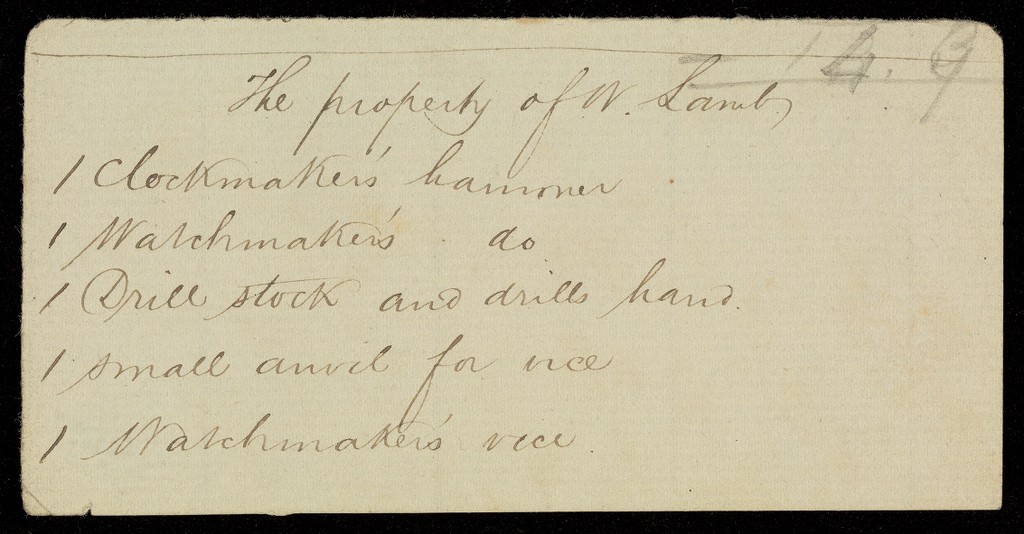 14.9
The property of W. Lamb,
1 Clockmaker's hammer
1 Watchmaker's do
1 Drill stock and drills hand.
1 small anvil for vice
1 Watchmaker's vice